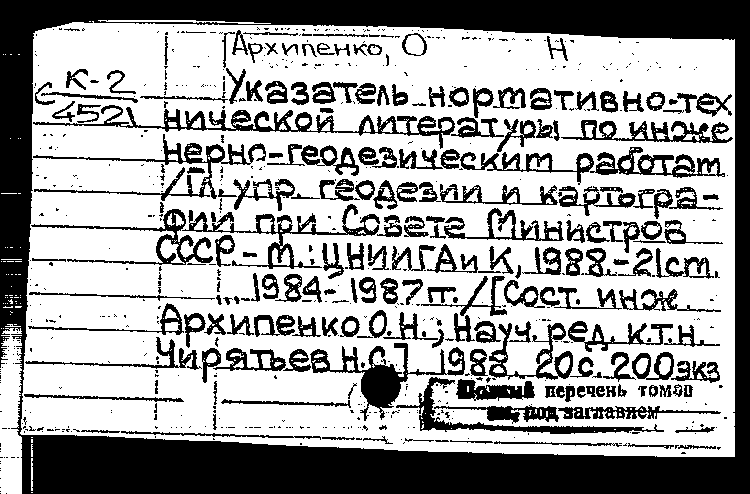 Архипенко, О Н
С К-2
4521
Указатель нормативно-тех
нической литературы по инже
нерно-геодезическим работам
/Гл. упр. геодезии и картогра-
фии при Совете Министров
СССР.- М.: ЦНИИГАиК, 1988.-21см.
... 1984-1987гг./[Сост. инж.
Архипенко О.Н.; Науч. ред. к.т.н.
Чирятьев Н.С.] 1988. 20с. 200экз
Полный перечень томов
см. под заглавием